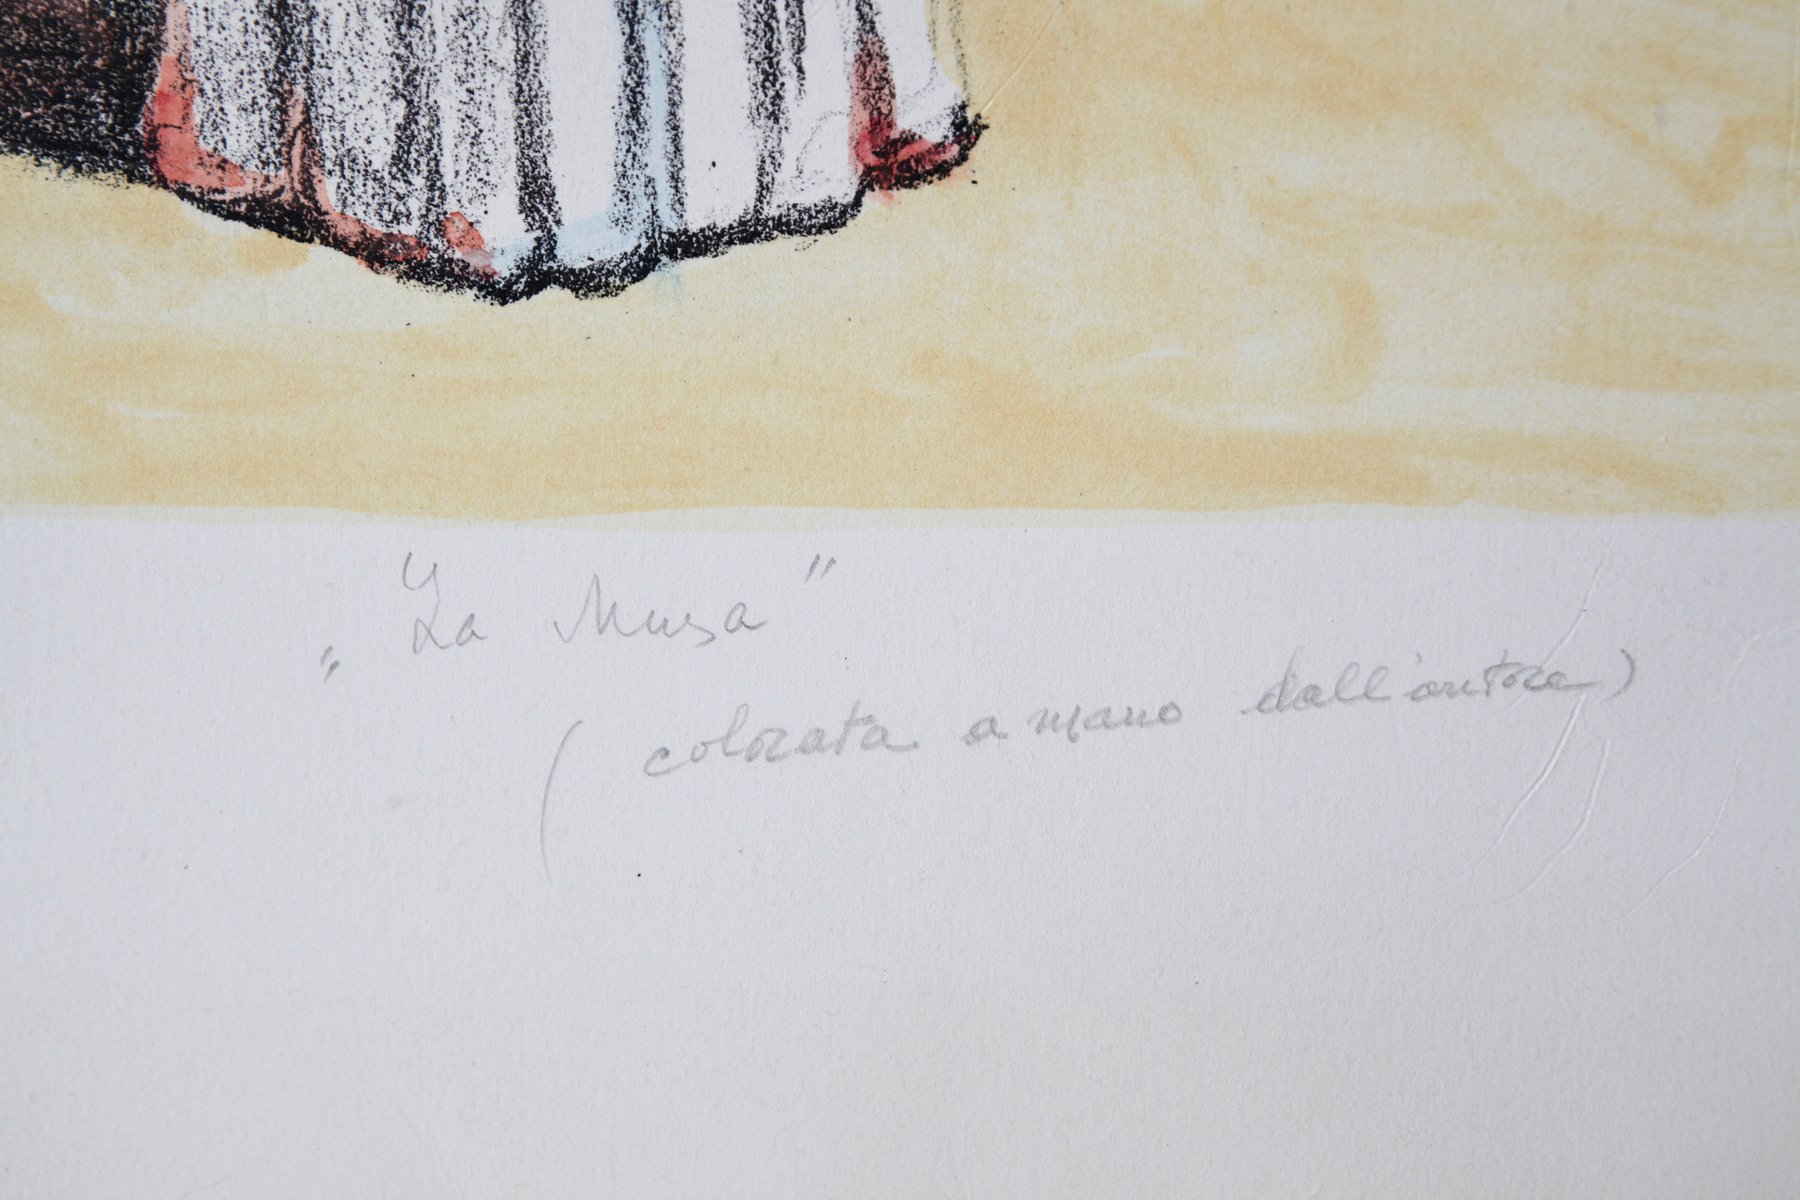 „ La Musa "
( colorata a mano dall'autore )